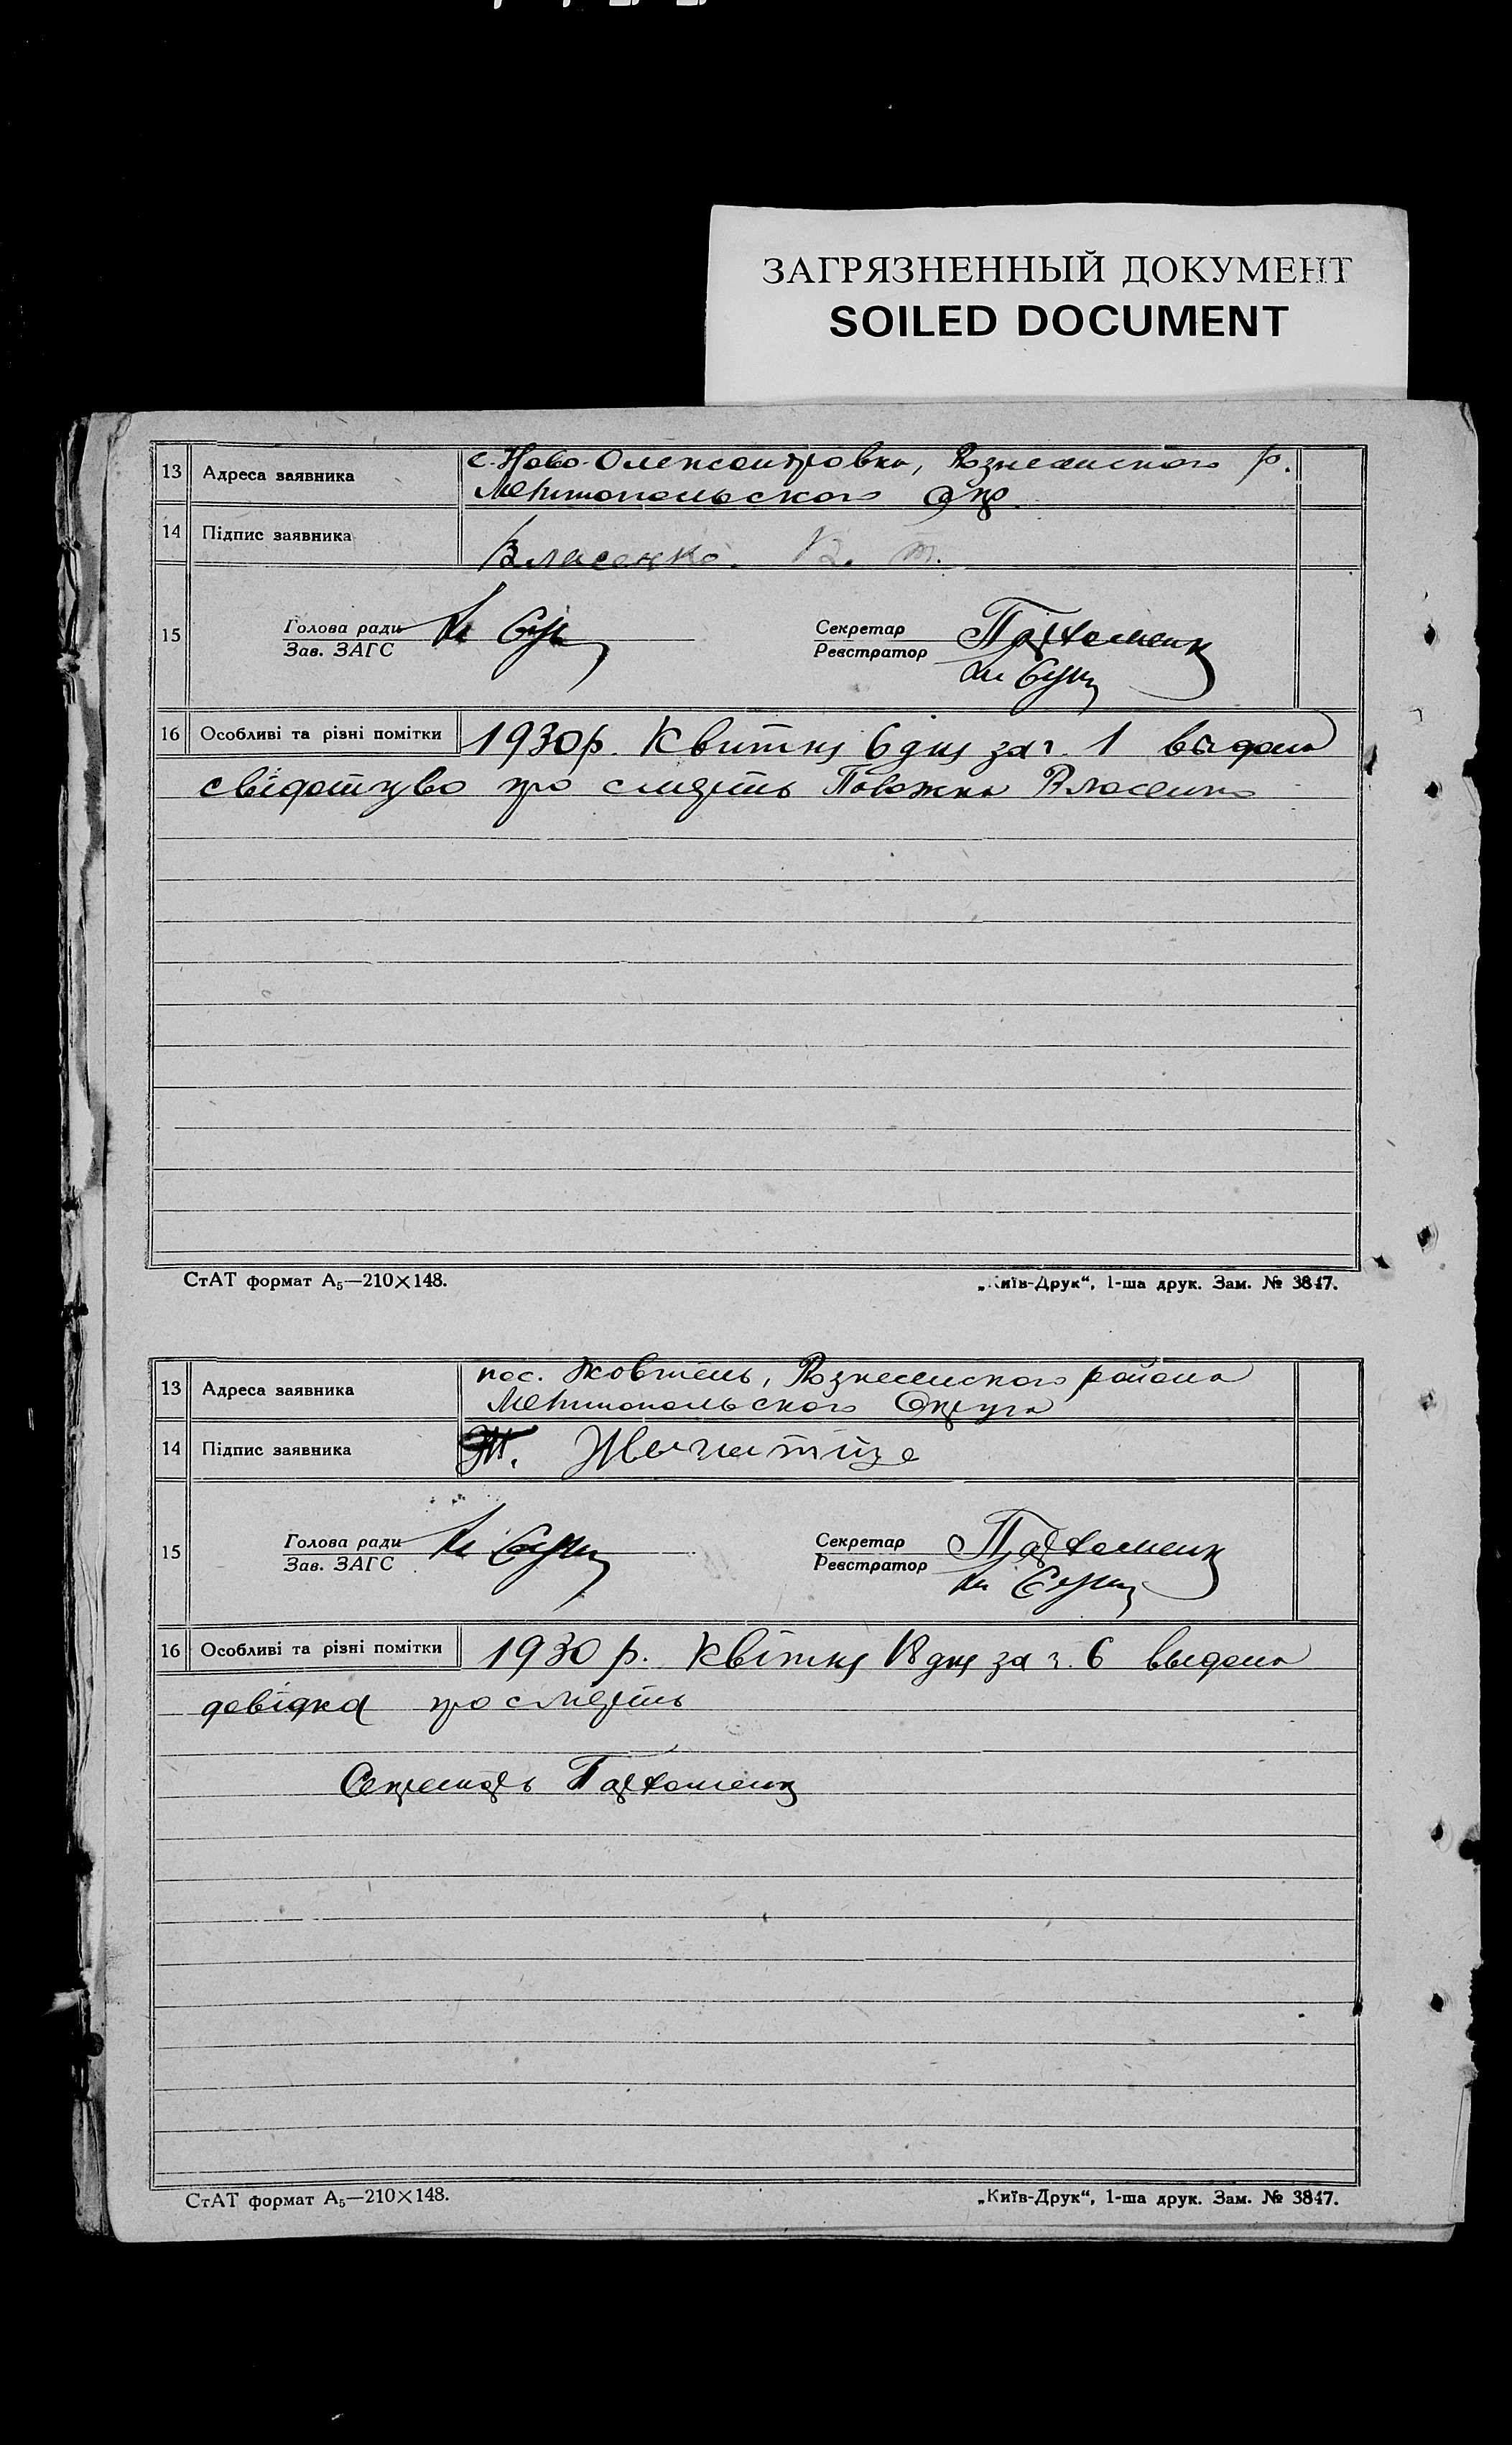 ЗАГРЯЗНЕННЫЙ ДОКУМЕНТ
SOILED DOCUMENT
13 Адреса заявника с. Ново-Олександровка, Вознесенского р.
Мелитопольского Окр.
14 Підпис заявника Власенко. В. Т.
15 Голова ради Секретар Пархоменк
Зав. ЗАГС Реєстратор
16 Особливі та різні помітки 1930 р. Квитня 6 дня за ч. 1 выдана
свідотцтво про смерть Власенко
СтАТ формат А₅—210×148. „Київ-Друк“, 1-ша друк. Зам. № 3847.
13 Адреса заявника пос. Жовтень, Вознесенского района
Мелитопольского Округа
14 Підпис заявника
15 Голова ради Секретар Пархоменк
Зав. ЗАГС Реєстратор
16 Особливі та різні помітки 1930 р. Квітня 18 дня за ч. 6 выдана
довідка про смерть
Секретарь Пархоменк
СтАТ формат А₅—210×148. „Київ-Друк“, 1-ша друк. Зам. № 3847.